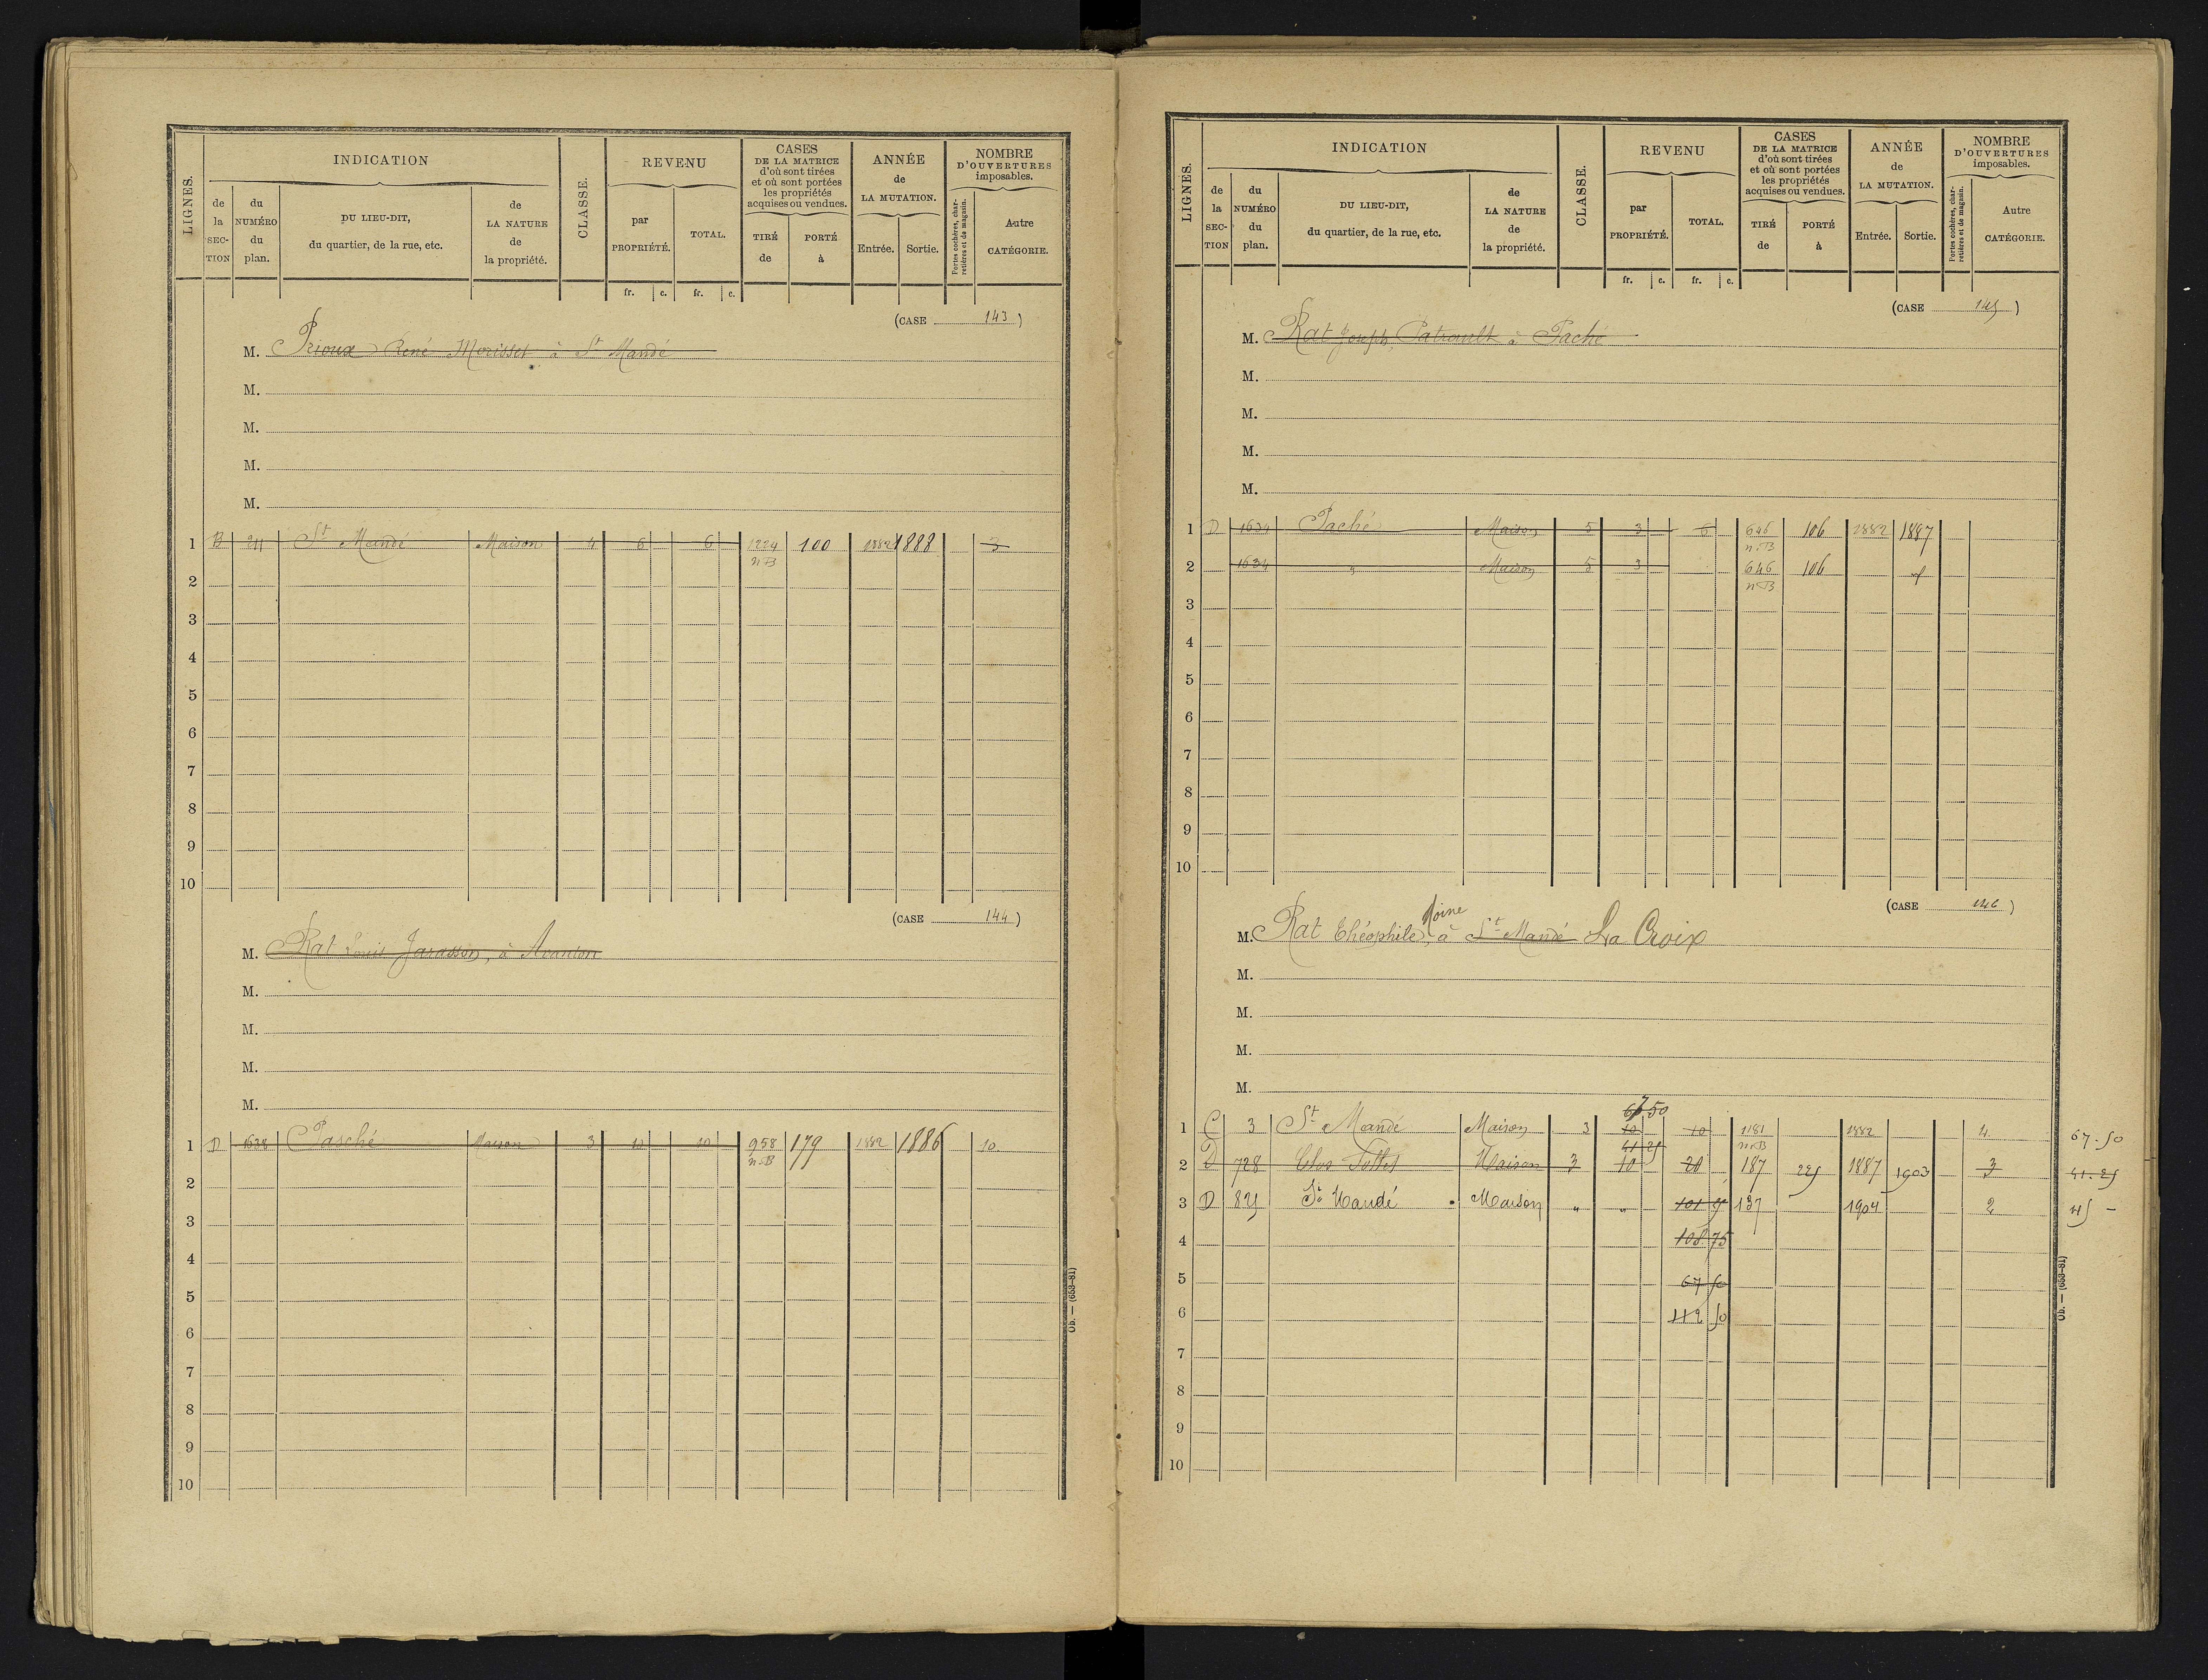 LIGNES.
INDICATION
CLASSE.
REVENU
CASES
DE LA MATRICE
d'où sont tirées
et où sont portées
les propriétés
acquises ou vendues.
ANNÉE
de
LA MUTATION.
NOMBRE
D'OUVERTURES
imposables.
de la SEC-TION
du NUMÉRO du plan.
DU LIEU-DIT,
du quartier, de la rue, etc.
de LA NATURE de la propriété.
par PROPRIÉTÉ.
TOTAL.
TIRÉ de
PORTÉ à
Entrée.
Sortie.
Portes cochères, char-
retières et de magasin.
Autre CATÉGORIE.
fr. c. fr. c.
(CASE 143)
M. Prioux René Morisset à St Mandé
M.
M.
M.
M.
1 B 211 St Mandé Maison 4 6 6 1224 n.B 100 1882 1888 3
2
3
4
5
6
7
8
9
10
(CASE 144)
M. Rat Louis Jarasson, à Avanton
M.
M.
M.
M.
1 D 1638 Pasché Maison 3 10 10 958 n.B 179 1882 1886 10.
2
3
4
5
6
7
8
9
10
Ob. — (653-81)
LIGNES.
INDICATION
CLASSE.
REVENU
CASES
DE LA MATRICE
d'où sont tirées
et où sont portées
les propriétés
acquises ou vendues.
ANNÉE
de
LA MUTATION.
NOMBRE
D'OUVERTURES
imposables.
de la SEC-TION
du NUMÉRO du plan.
DU LIEU-DIT,
du quartier, de la rue, etc.
de LA NATURE de la propriété.
par PROPRIÉTÉ.
TOTAL.
TIRÉ de
PORTÉ à
Entrée.
Sortie.
Portes cochères, char-
retières et de magasin.
Autre CATÉGORIE.
fr. c. fr. c.
(CASE 145)
M. Rat Joseph Patrault à Paché
M.
M.
M.
M.
1 D 1634 Paché Maison 5 3 6 646 n.B 106 1882 1897
2 1634 " Maison 5 3 646 n.B 106
3
4
5
6
7
8
9
10
(CASE 146)
M. Rat Théophile, à St Mandé La Croix
M.
M.
M.
M.
67 50
1 C 3 St Mandé Maison 3 10 10 1181 n.B 1882 4. 67.50
41 25
2 D 728 Clos Maison 3 10 20 187 225 1887 1903 3 41.25
3 D 825 St Mandé Maison " " 101 187 1904 2 45 -
4 108.75
5 67 50
6 112 50
7
8
9
10
Ob. — (653-81)